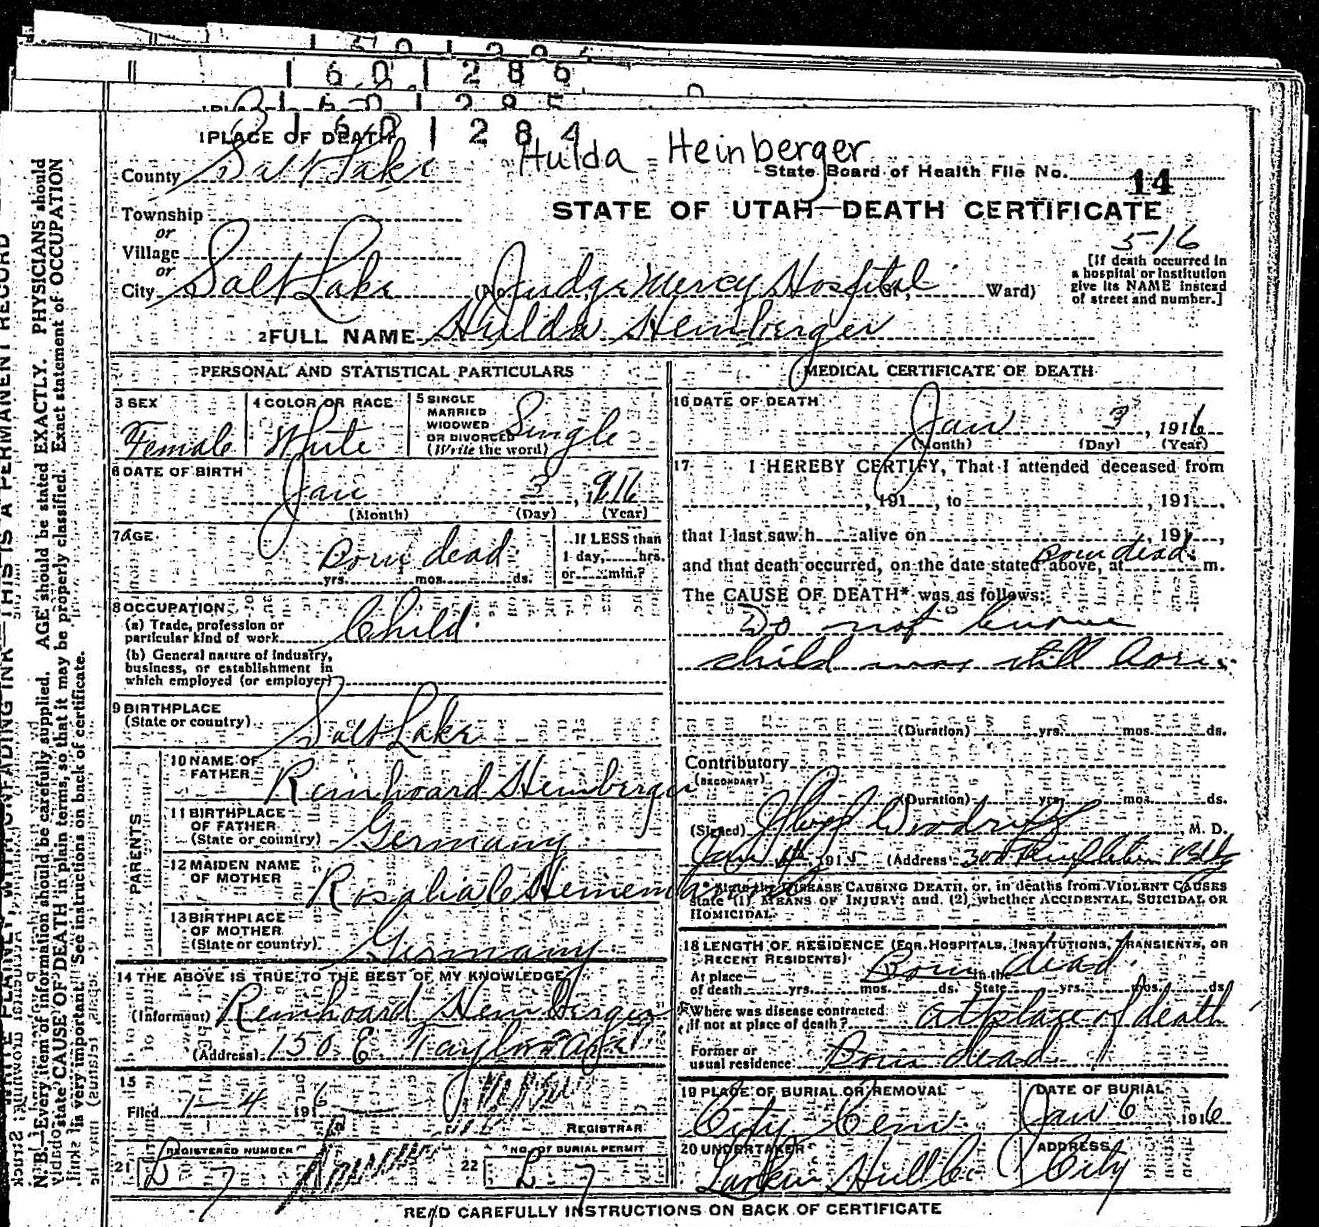 1601286
1601285
1601284
1 PLACE OF DEATH
Hulda Heinberger
County Salt Lake
State Board of Health File No. 14
Township
STATE OF UTAH—DEATH CERTIFICATE
or
Village
516
or
City Salt Lake (No. Judge Mercy Hospital St., Ward)
[If death occurred in
a hospital or institution
give its NAME instead
of street and number.]
2 FULL NAME Hulda Heinberger
PERSONAL AND STATISTICAL PARTICULARS
3 SEX
Female
4 COLOR OR RACE
White
5 SINGLE
MARRIED
WIDOWED
OR DIVORCED
(Write the word)
Single
6 DATE OF BIRTH
Jan 3, 916
(Month) (Day) (Year)
7 AGE
Born dead
yrs. mos. ds.
If LESS than
1 day, hrs.
or min.?
8 OCCUPATION
(a) Trade, profession or
particular kind of work Child
(b) General nature of industry,
business, or establishment in
which employed (or employer)
9 BIRTHPLACE
(State or country) Salt Lake
PARENTS
10 NAME OF
FATHER Reinhoard Heinberger
11 BIRTHPLACE
OF FATHER
(State or country) Germany
12 MAIDEN NAME
OF MOTHER Rosalia
13 BIRTHPLACE
OF MOTHER
(State or country) Germany
14 THE ABOVE IS TRUE TO THE BEST OF MY KNOWLEDGE
(Informant) Reinhoard Heinberger
(Address) 150 E. Taylor
15
Filed 1-4 1916
REGISTRAR
REGISTERED NUMBER
21 L 7
NO. OF BURIAL PERMIT
22 L 7
MEDICAL CERTIFICATE OF DEATH
16 DATE OF DEATH
Jan 3, 1916
(Month) (Day) (Year)
17 I HEREBY CERTIFY, That I attended deceased from
, 191 , to , 191 ,
that I last saw h alive on , 191 ,
and that death occurred, on the date stated above, at born dead m.
The CAUSE OF DEATH* was as follows:
Do not know
child was still born
(Duration) yrs. mos. ds.
Contributory
(SECONDARY)
(Duration) yrs. mos. ds.
(Signed) Woodruff M. D.
Jan 4 191 (Address) 300 Templeton Bldg
*State the DISEASE CAUSING DEATH, or, in deaths from VIOLENT CAUSES
state (1) MEANS OF INJURY; and (2) whether ACCIDENTAL, SUICIDAL OR
HOMICIDAL.
18 LENGTH OF RESIDENCE (FOR HOSPITALS, INSTITUTIONS, TRANSIENTS, OR
RECENT RESIDENTS)
At place Born In the dead
of death yrs. mos. ds. State yrs. mos. ds.
Where was disease contracted
if not at place of death? at place of death
Former or
usual residence Born dead
19 PLACE OF BURIAL OR REMOVAL
City Cem
DATE OF BURIAL
Jan 6 1916
20 UNDERTAKER
Larkin Hull Co
ADDRESS
City
READ CAREFULLY INSTRUCTIONS ON BACK OF CERTIFICATE
N. B.—Every item of information should be carefully supplied. AGE should be stated EXACTLY. PHYSICIANS should
state CAUSE OF DEATH in plain terms, so that it may be properly classified. Exact statement of OCCUPATION
is very important. See instructions on back of certificate.